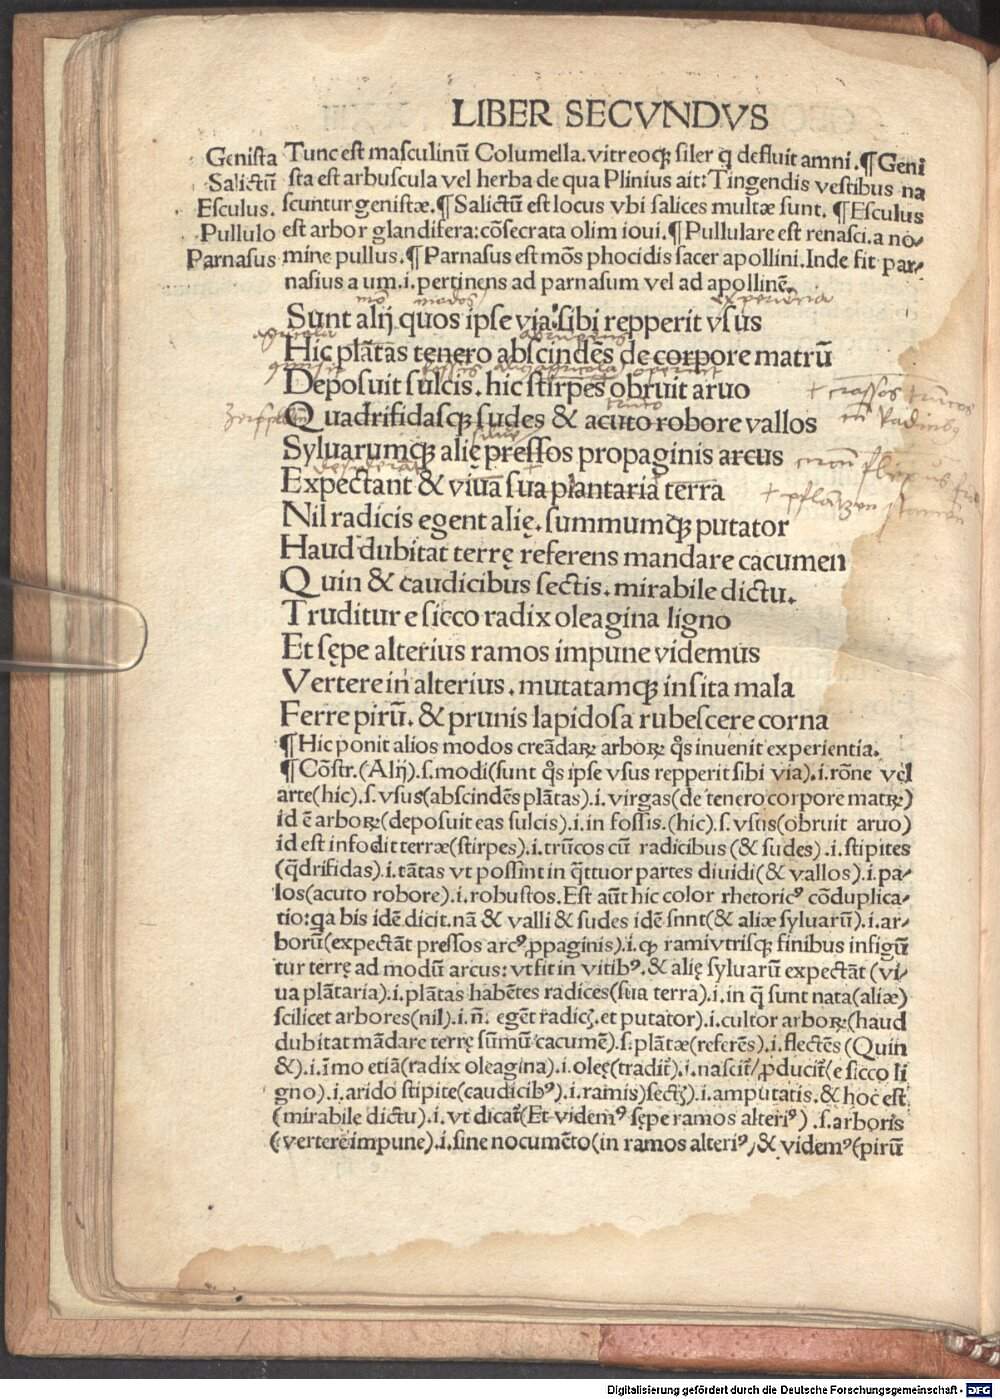 LIBER SECVNDVS
Genista Tunc est masculinū Columella. vitreoqꝫ siler q̄ defluit amni. ¶ Geni
Salictū sta est arbuscula vel herba de qua Plinius ait: Tingendis vestibus na
Esculus. scuntur genistæ. ¶ Salictū est locus vbi salices multæ sunt. ¶ Esculus
Pullulo est arbor glandifera: cōsecrata olim ioui. ¶ Pullulare est renasci. a no-
Parnasus mine pullus. ¶ Parnasus est mōs phocidis sacer apollini. Inde fit par-
nasius a um .i. pertinens ad parnasum vel ad apollinē.
modos experiēcia
Sunt alij quos ipse via sibi repperit vsus
agricola
Hic plātas tenero abscindēs de corpore matrū
agricola operuit
Deposuit sulcis. hic stirpes obruit aruo
+ crassos trūcos
Quadrifidasqꝫ sudes & acuto robore vallos
silue
Syluarumqꝫ alię pressos propaginis arcus
desiderāt
Expectant & viuā sua plantaria terra
+ pflanzen
Nil radicis egent alię. summumqꝫ putator
Haud dubitat terrę referens mandare cacumen
Quin & caudicibus sectis. mirabile dictu.
Truditur e sicco radix oleagina ligno
Et sępe alterius ramos impune videmus
Vertere in alterius. mutatamqꝫ insita mala
Ferre pirū. & prunis lapidosa rubescere corna
¶ Hic ponit alios modos creādaꝝ arboꝝ q̄s inuenit experientia.
¶ Cōstr. (Alij) .s. modi (sunt q̄s ipse vsus repperit sibi via) .i. rōne vel
arte (hic) .s. vsus (abscindēs plātas) .i. virgas (de tenero corpore matꝝ)
id ē arboꝝ (deposuit eas sulcis) .i. in fossis. (hic) .s. vsus (obruit aruo)
id est infodit terræ (stirpes) .i. trūcos cū radicibus (& sudes) .i. stipites
(q̄drifidas) .i. tātas vt possint in q̄ttuor partes diuidi (& vallos) .i. pa-
los (acuto robore) .i. robustos. Est aūt hic color rhetoricꝰ cōduplica-
tio: qa bis idē dicit. nā & valli & sudes idē snnt (& aliæ syluarū) .i. ar-
borū (expectāt pressos arcꝰ ꝓpaginis) .i. qꝫ rami vtrisqꝫ finibus infigū
tur terrę ad modū arcus: vt fit in vitibꝰ. & alię syluarū expectāt (vi-
ua plātaria) .i. plātas habētes radices (sua terra) .i. in q̄ sunt nata (aliæ)
scilicet arbores (nil) .i. n̄. egēt radicꝭ. et putator) .i. cultor arboꝝ (haud
dubitat mādare terrę sūmū cacumē) .s. plātæ (referēs) .i. flectēs (Quin
&) .i. īmo etiā (radix oleagina) .i. oleę (tradit̄) .i. nascit̄ / ꝓducit̄ (e sicco li
gno) .i. arido stipite (caudicibꝰ) .i. ramis) sectꝭ) .i. amputatis. & hoc est
(mirabile dictu) .i. vt dicat̄ (Et videmꝰ sępe ramos alteriꝰ) .s. arboris
(vertere impune) .i. sine nocumēto (in ramos alteriꝰ, & videmꝰ (pirū
Digitalisierung gefördert durch die Deutsche Forschungsgemeinschaft - DFG